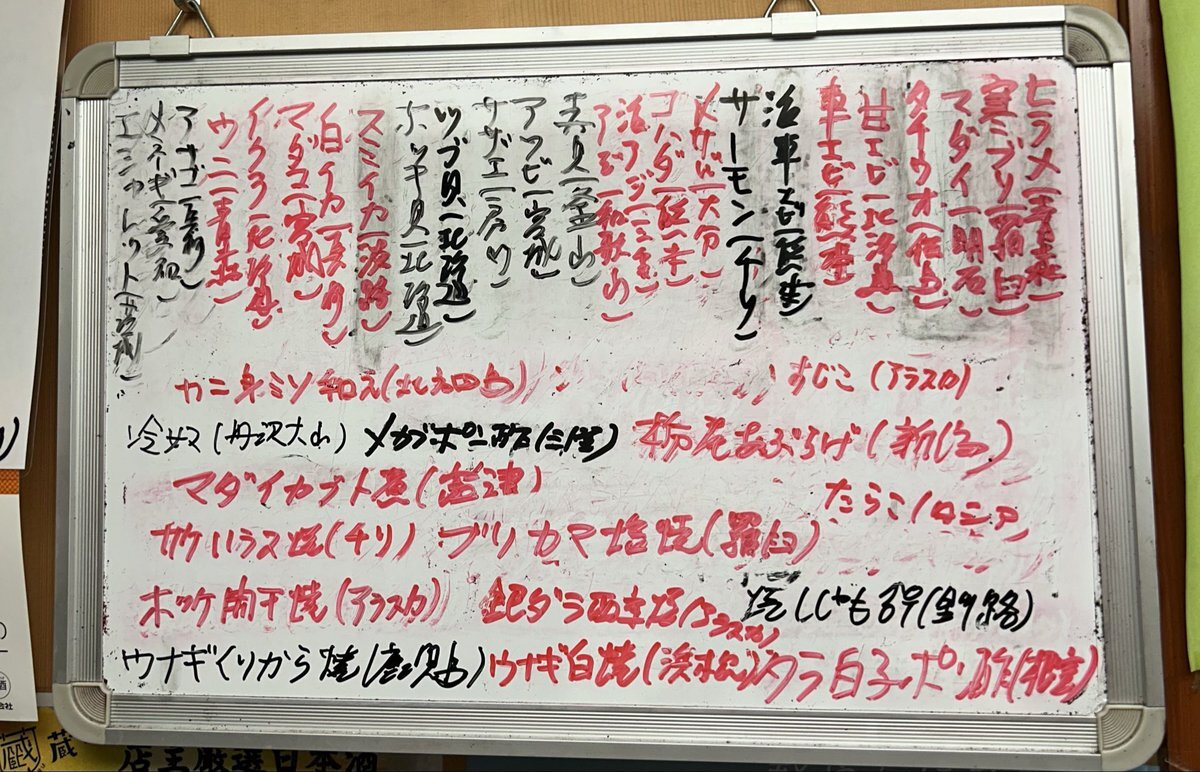 ヒラメ(青森)
寒ブリ(羅臼)
マダイ(明石)
タチウオ(
甘エビ(北海道)
車エビ(熊本)
活車エビ(熊本)
サーモン(チリ)
(大分)
コハダ(熊本)
活アジ(三重)
(和歌山)
青貝(釜山)
アワビ(宮城)
サザエ(
ツブ貝(北海道)
ホッキ貝(北海道)
スミイカ(淡路)
白イカ(
マダコ(
イクラ(北海道)
ウニ(青森)
アナゴ(長崎)
メネギ(愛知)
エシャレット(
カニ身ミソ和え(
すじこ(アラスカ)
冷奴(丹沢大山)
メカブポン酢(三陸)
栃尾あぶらげ(新潟)
マダイカブト煮(
たらこ(ロシア)
サケハラス焼(チリ)
ブリカマ塩焼(羅臼)
ホッケ開干焼(アラスカ)
銀ダラ西京焼(アラスカ)
焼ししゃも(釧路)
ウナギイリから焼(鹿児島)
ウナギ白焼(浜松)
タラ白子ポン酢(
蔵
店主厳選日本酒